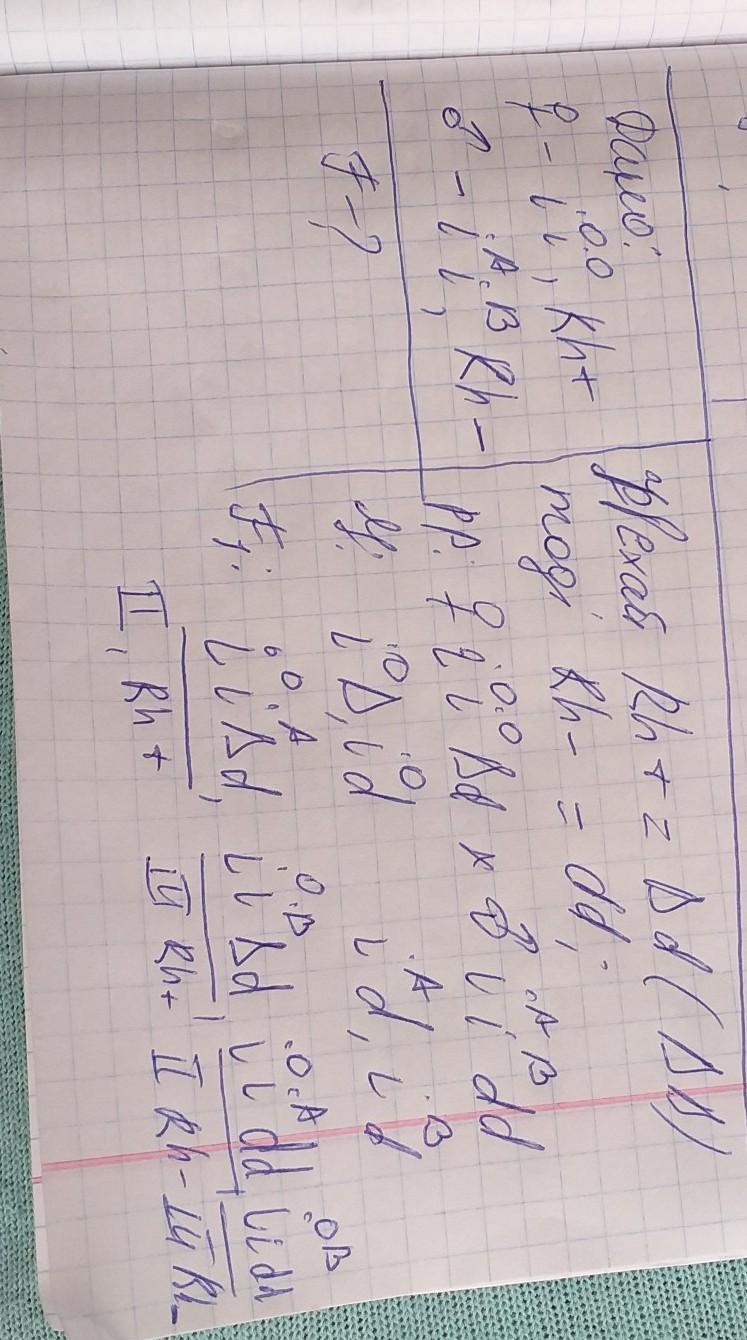 Дано:
♀ - i⁰i⁰, Rh+
♂ - iᴬiᴮ, Rh-
F - ?
Нехай Rh+ = Dd (DD)
тоді Rh- = dd;
PP: ♀ i⁰i⁰ Dd x ♂ iᴬiᴮ dd
G: i⁰D, i⁰d iᴬd, iᴮd
F₁: i⁰iᴬDd, i⁰iᴮDd, i⁰iᴬdd, i⁰iᴮdd
II, Rh+ III Rh+ II Rh- III Rh-